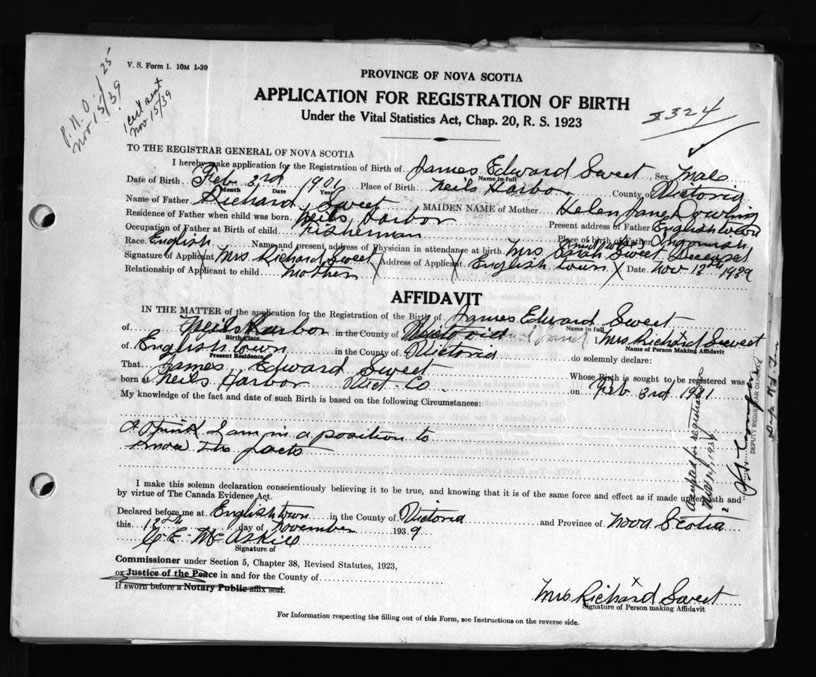 V. S. Form 1. 10M 1-39
P. N. O.
Nov 15/39
1 cert sent
Nov 15/39
PROVINCE OF NOVA SCOTIA
APPLICATION FOR REGISTRATION OF BIRTH
Under the Vital Statistics Act, Chap. 20, R. S. 1923
TO THE REGISTRAR GENERAL OF NOVA SCOTIA
I hereby make application for the Registration of Birth of James Edward Sweet, Sex Male
Name in full
Date of Birth Feb 3rd Place of Birth Neils Harbor County of Victoria
Month Date Year
Name of Father Richard Sweet MAIDEN NAME of Mother Helen Jane Dowling
Residence of Father when child was born Neils Harbor Present address of Father Englishtown
Occupation of Father at Birth of child fisherman Place of birth of Father Ingonish
Race English Name and present address of Physician in attendance at birth Mrs Sarah Sweet Deceased
Signature of Applicant Mrs Richard Sweet Address of Applicant English town Date Nov 12th 1939
Relationship of Applicant to child mother
AFFIDAVIT
IN THE MATTER of the application for the Registration of the Birth of James Edward Sweet
Name in full
of Neils Harbor in the County of Victoria Mrs Richard Sweet
Birth Place Name of Person Making Affidavit
of English town in the County of Victoria do solemnly declare:
Present Residence
That James Edward Sweet Whose Birth is sought to be registered was
born at Neils Harbor Vict. Co. on Feb 3rd
My knowledge of the fact and date of such Birth is based on the following Circumstances:
I am in a position to
know the facts
I make this solemn declaration conscientiously believing it to be true, and knowing that it is of the same force and effect as if made under oath and
by virtue of The Canada Evidence Act.
Declared before me at Englishtown in the County of Victoria and Province of Nova Scotia
this 12th day of November 1939
Signature of
Commissioner under Section 5, Chapter 38, Revised Statutes, 1923,
or Justice of the Peace in and for the County of
If sworn before a Notary Public affix seal.
Mrs Richard Sweet
Signature of Person making Affidavit
For Information respecting the filling out of this Form, see Instructions on the reverse side.
Accepted for registration
DEPUTY REGISTRAR GENERAL